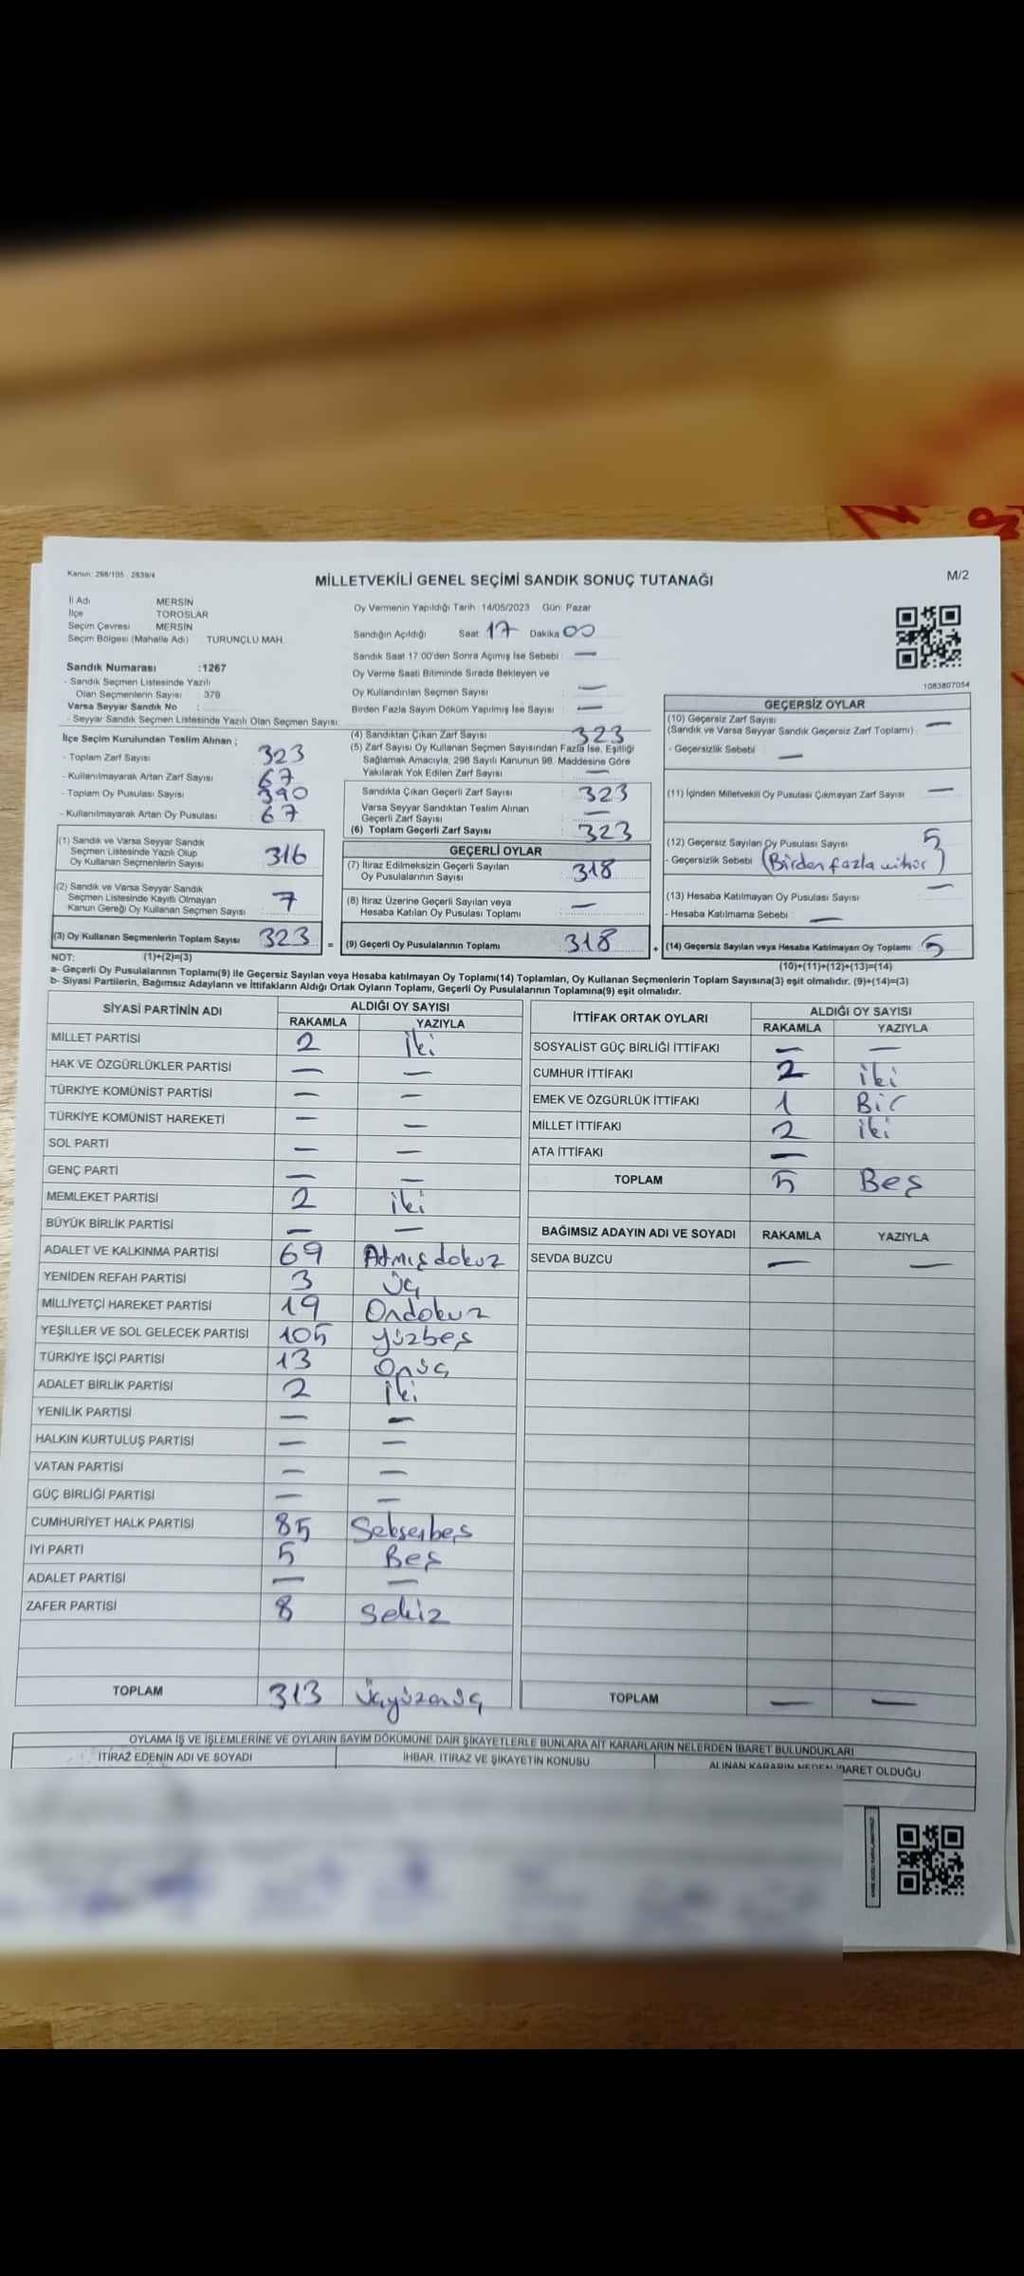 Kanun: 298/105 2839/4
MİLLETVEKİLİ GENEL SEÇİMİ SANDIK SONUÇ TUTANAĞI
M/2
İl Adı MERSİN
İlçe TOROSLAR
Seçim Çevresi MERSİN
Seçim Bölgesi (Mahalle Adı) TURUNÇLU MAH.
Oy Vermenin Yapıldığı Tarih :14/05/2023 Gün: Pazar
Sandığın Açıldığı Saat 17 Dakika 00
Sandık Saat 17:00'den Sonra Açımış İse Sebebi : —
Oy Verme Saati Bitiminde Sırada Bekleyen ve
Oy Kullandırılan Seçmen Sayısı : —
Birden Fazla Sayım Döküm Yapılmış İse Sayısı : —
1083807054
Sandık Numarası :1267
- Sandık Seçmen Listesinde Yazılı
Olan Seçmenlerin Sayısı : 378
Varsa Seyyar Sandık No :
- Seyyar Sandık Seçmen Listesinde Yazılı Olan Seçmen Sayısı:
İlçe Seçim Kurulundan Teslim Alınan ;
- Toplam Zarf Sayısı 323
- Kullanılmayarak Artan Zarf Sayısı 67
- Toplam Oy Pusulası Sayısı 390
- Kullanılmayarak Artan Oy Pusulası 67
(1) Sandık ve Varsa Seyyar Sandık
Seçmen Listesinde Yazılı Olup
Oy Kullanan Seçmenlerin Sayısı 316
(2) Sandık ve Varsa Seyyar Sandık
Seçmen Listesinde Kayıtlı Olmayan
Kanun Gereği Oy Kullanan Seçmen Sayısı 7
(3) Oy Kullanan Seçmenlerin Toplam Sayısı 323 =
(1)+(2)=(3)
(4) Sandıktan Çıkan Zarf Sayısı 323
(5) Zarf Sayısı Oy Kullanan Seçmen Sayısından Fazla İse, Eşitliği
Sağlamak Amacıyla, 298 Sayılı Kanunun 98. Maddesine Göre
Yakılarak Yok Edilen Zarf Sayısı —
Sandıkta Çıkan Geçerli Zarf Sayısı 323
Varsa Seyyar Sandıktan Teslim Alınan
Geçerli Zarf Sayısı —
(6) Toplam Geçerli Zarf Sayısı 323
GEÇERLİ OYLAR
(7) İtiraz Edilmeksizin Geçerli Sayılan
Oy Pusulalarının Sayısı 318
(8) İtiraz Üzerine Geçerli Sayılan veya
Hesaba Katılan Oy Pusulası Toplamı —
(9) Geçerli Oy Pusulalarının Toplamı 318 +
GEÇERSİZ OYLAR
(10) Geçersiz Zarf Sayısı —
(Sandık ve Varsa Seyyar Sandık Geçersiz Zarf Toplamı)
- Geçersizlik Sebebi —
(11) İçinden Milletvekili Oy Pusulası Çıkmayan Zarf Sayısı —
(12) Geçersiz Sayılan Oy Pusulası Sayısı 5
- Geçersizlik Sebebi (Birden fazla mühür)
(13) Hesaba Katılmayan Oy Pusulası Sayısı —
- Hesaba Katılmama Sebebi : —
(14) Geçersiz Sayılan veya Hesaba Katılmayan Oy Toplamı 5
(10)+(11)+(12)+(13)=(14)
NOT:
a- Geçerli Oy Pusulalarının Toplamı(9) ile Geçersiz Sayılan veya Hesaba katılmayan Oy Toplamı(14) Toplamları, Oy Kullanan Seçmenlerin Toplam Sayısına(3) eşit olmalıdır. (9)+(14)=(3)
b- Siyasi Partilerin, Bağımsız Adayların ve İttifakların Aldığı Ortak Oyların Toplamı, Geçerli Oy Pusulalarının Toplamına(9) eşit olmalıdır.
SİYASİ PARTİNİN ADI
ALDIĞI OY SAYISI
RAKAMLA YAZIYLA
MİLLET PARTİSİ 2 İki
HAK VE ÖZGÜRLÜKLER PARTİSİ — —
TÜRKİYE KOMÜNİST PARTİSİ — —
TÜRKİYE KOMÜNİST HAREKETİ — —
SOL PARTİ — —
GENÇ PARTİ — —
MEMLEKET PARTİSİ 2 İki
BÜYÜK BİRLİK PARTİSİ — —
ADALET VE KALKINMA PARTİSİ 69 Atmışdokuz
YENİDEN REFAH PARTİSİ 3 Üç
MİLLİYETÇİ HAREKET PARTİSİ 19 Ondokuz
YEŞİLLER VE SOL GELECEK PARTİSİ 105 yüzbeş
TÜRKİYE İŞÇİ PARTİSİ 13 Onüç
ADALET BİRLİK PARTİSİ 2 İki
YENİLİK PARTİSİ — —
HALKIN KURTULUŞ PARTİSİ — —
VATAN PARTİSİ — —
GÜÇ BİRLİĞİ PARTİSİ — —
CUMHURİYET HALK PARTİSİ 85 Seksenbeş
İYİ PARTİ 5 Beş
ADALET PARTİSİ — —
ZAFER PARTİSİ 8 Sekiz
TOPLAM 313 Üçyüzonüç
İTTİFAK ORTAK OYLARI
ALDIĞI OY SAYISI
RAKAMLA YAZIYLA
SOSYALİST GÜÇ BİRLİĞİ İTTİFAKI — —
CUMHUR İTTİFAKI 2 iki
EMEK VE ÖZGÜRLÜK İTTİFAKI 1 Bir
MİLLET İTTİFAKI 2 iki
ATA İTTİFAKI —
TOPLAM 5 Beş
BAĞIMSIZ ADAYIN ADI VE SOYADI RAKAMLA YAZIYLA
SEVDA BUZCU — —
TOPLAM — —
OYLAMA İŞ VE İŞLEMLERİNE VE OYLARIN SAYIM DÖKÜMÜNE DAİR ŞİKAYETLERLE BUNLARA AİT KARARLARIN NELERDEN İBARET BULUNDUKLARI
İTİRAZ EDENİN ADI VE SOYADI İHBAR, İTİRAZ VE ŞİKAYETİN KONUSU ALINAN KARARIN NEDEN İBARET OLDUĞU